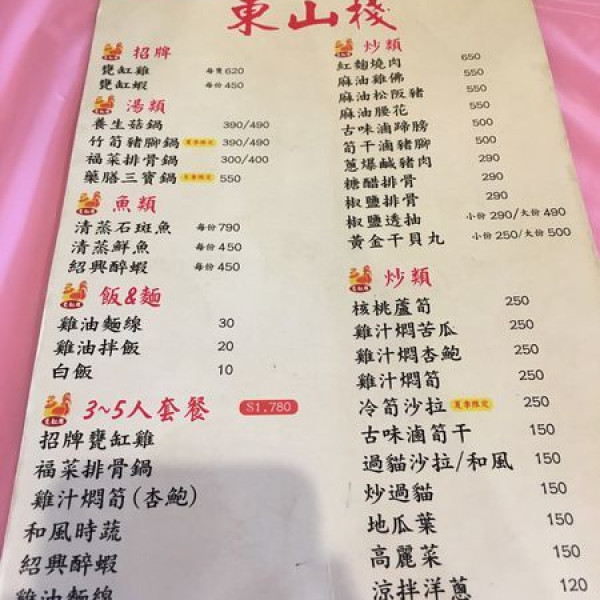 東山棧
招牌
甕缸雞 每隻620
甕缸蝦 每份450
湯類
養生菇鍋 390/490
竹筍豬腳鍋 夏季限定 390/490
福菜排骨鍋 300/400
藥膳三寶鍋 冬季限定 550
魚類
清蒸石斑魚 每份790
清蒸鮮魚 每份450
紹興醉蝦 每份450
飯&麵
雞油麵線 30
雞油拌飯 20
白飯 10
3~5人套餐 $1,780
招牌甕缸雞
福菜排骨鍋
雞汁燜筍(杏鮑)
和風時蔬
紹興醉蝦
雞油麵線
炒類
紅麴燒肉 650
麻油雞佛 550
麻油松阪豬 550
麻油腰花 550
古味滷蹄膀 500
筍干滷豬腳 500
蔥爆鹹豬肉 290
糖醋排骨 290
椒鹽排骨 290
椒鹽透抽 小份290/大份490
黃金干貝丸 小份250/大份500
炒類
核桃蘆筍 250
雞汁燜苦瓜 250
雞汁燜杏鮑 250
雞汁燜筍 250
冷筍沙拉 夏季限定 250
古味滷筍干 150
過貓沙拉/和風 150
炒過貓 150
地瓜葉 150
高麗菜 150
涼拌洋蔥 120